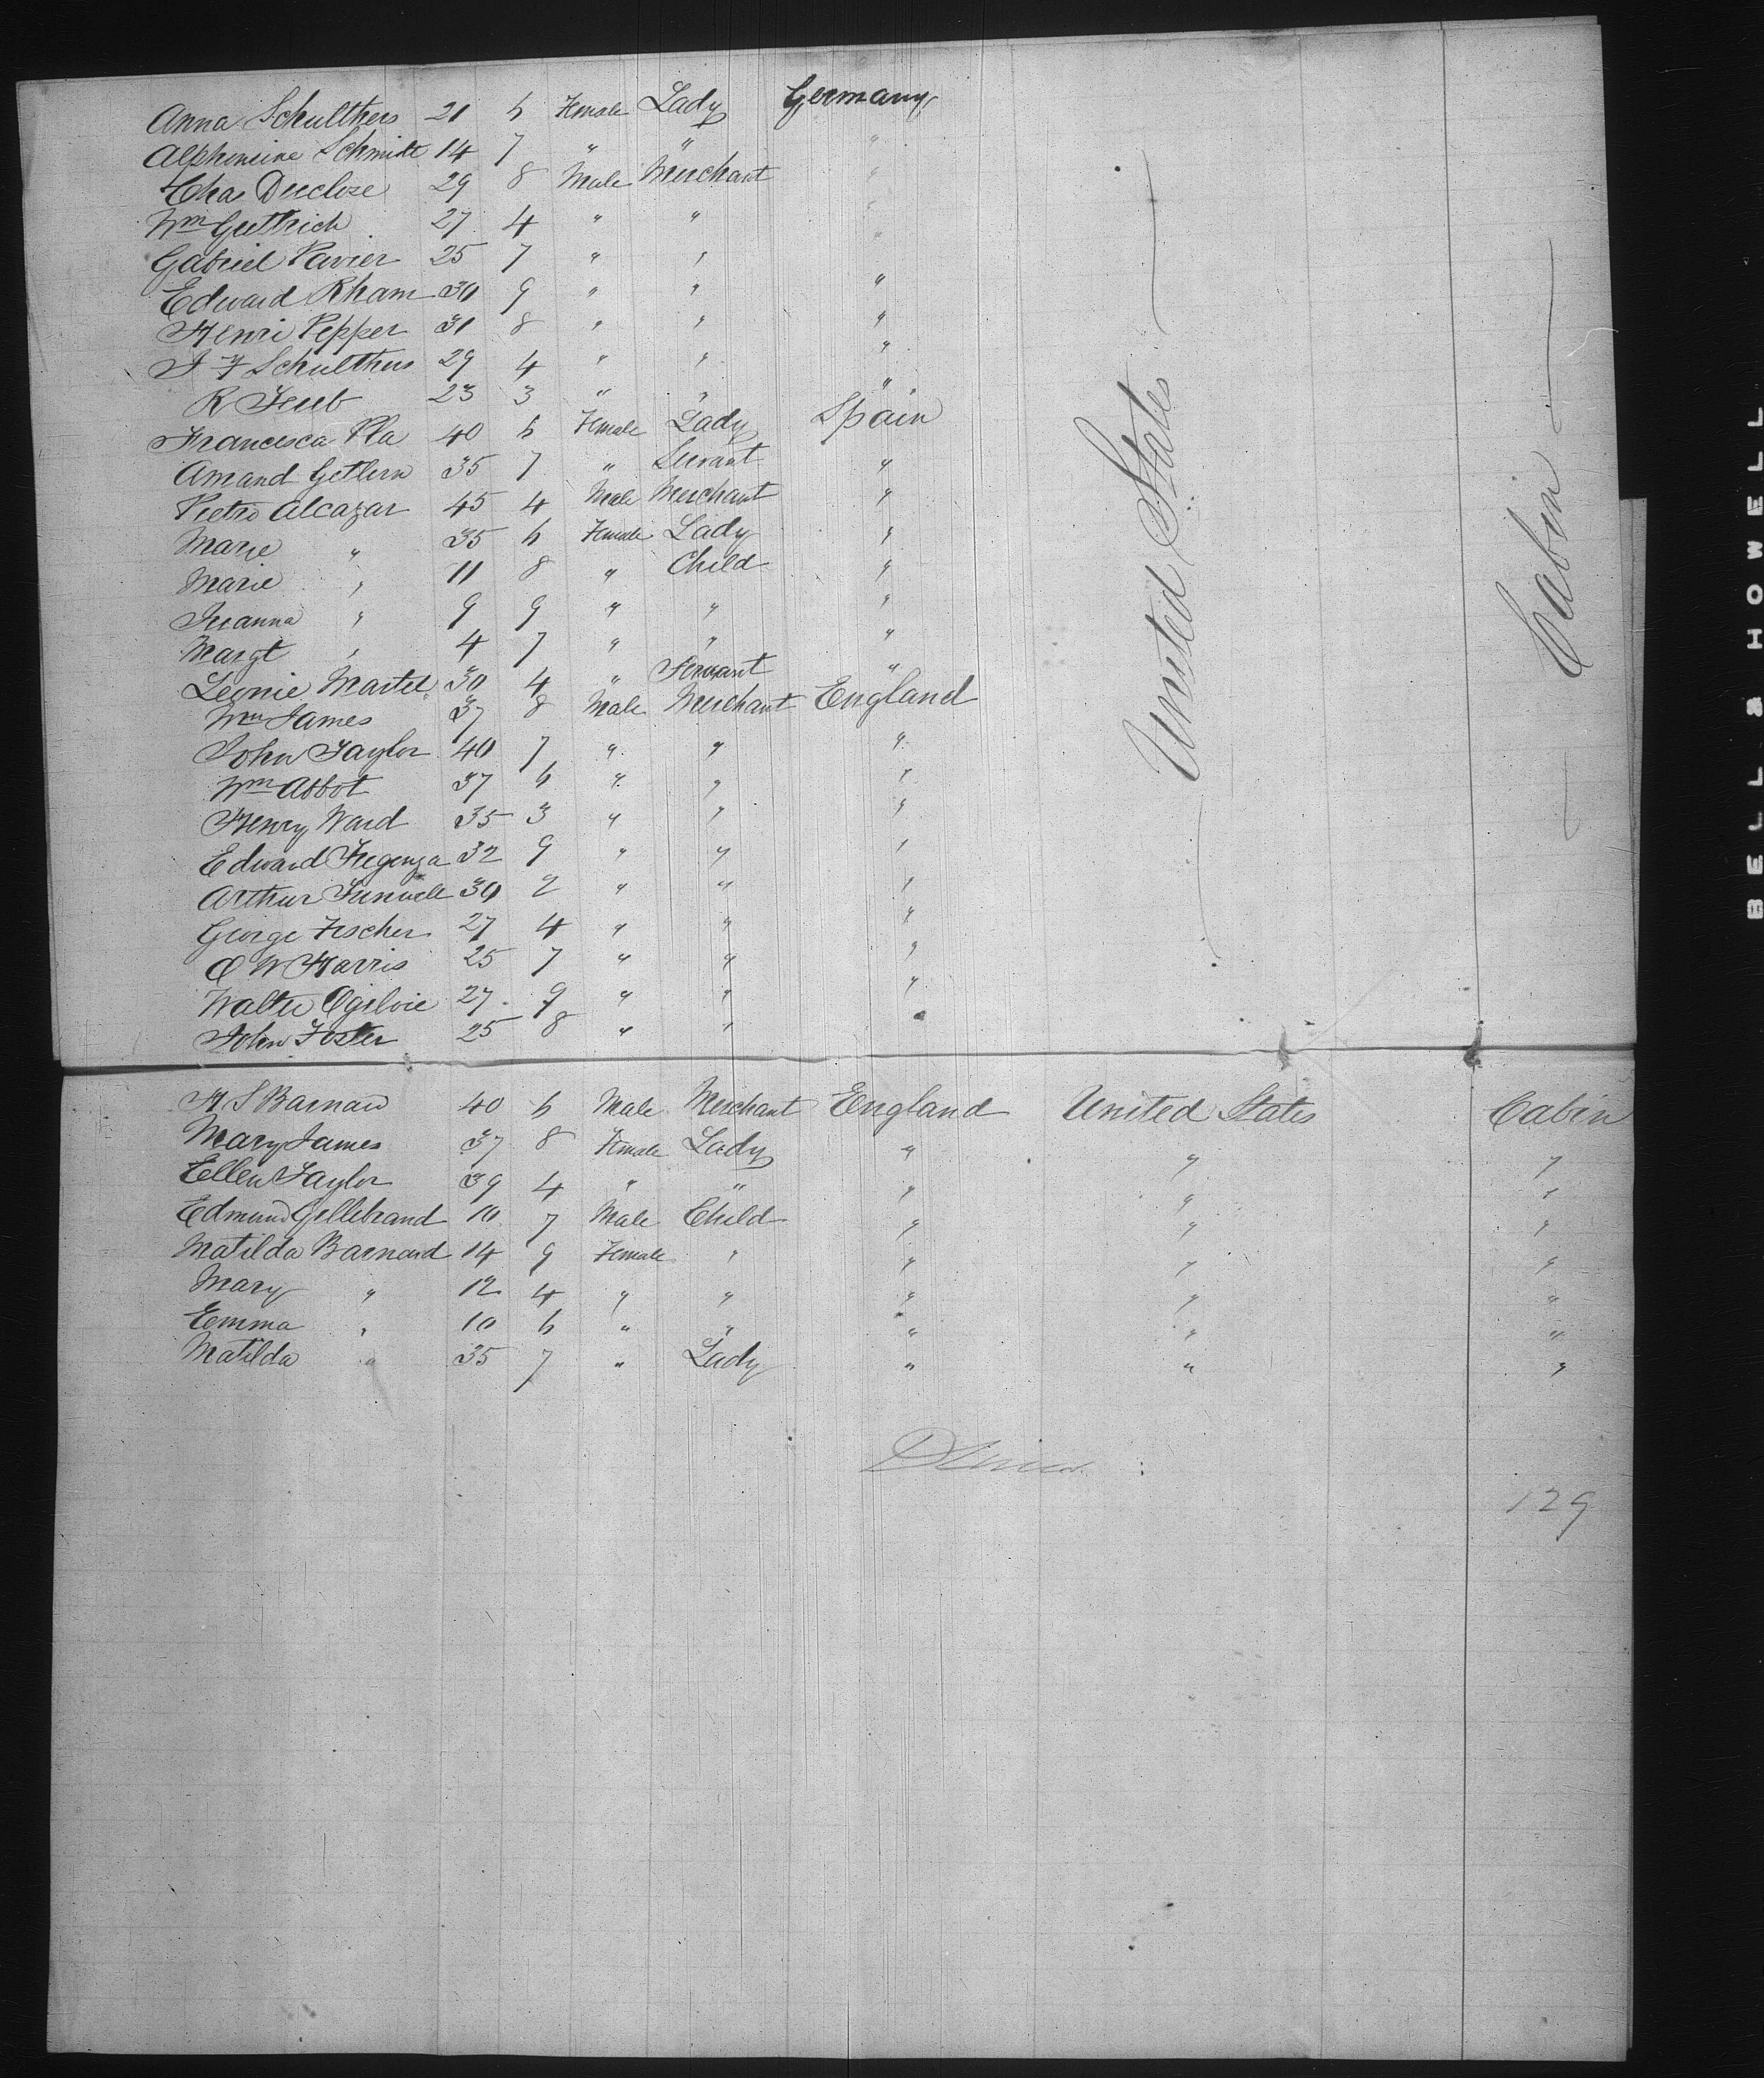 Anna Schulthers 21 6 Female Lady Germany
Alphonsine Schmidt 14 7 " "
Cha Duclose 29 8 Male Merchant "
Wm Guttrich 27 4 " " "
Gabriel Pavier 25 7 " " "
Edward Rham 30 9 " " "
Henri Pepper 31 8 " " "
J F Schulthers 29 4 " " "
R 23 3 " " "
Francesca Pla 40 6 Female Lady Spain
Amand Getlern 35 7 " Servant "
Pietro Alcazar 45 4 Male Merchant "
Marie " 35 6 Female Lady "
Marie " 11 8 " Child "
Juanna " 9 9 " " "
Margt " 4 7 " " "
Leonie Martel 30 4 " Servant "
Wm James 37 8 Male Merchant England
John Taylor 40 7 " " "
Wm Abbot 37 6 " " "
Henry Ward 35 3 " " "
Edward 32 9 " " "
Arthur 30 2 " " "
George Fischer 27 4 " " "
O W Harris 25 7 " " "
Walter Ogilvie 27 9 " " "
John Foster 25 8 " " "
United States
Cabin
H S Barnard 40 6 Male Merchant England United States Cabin
Mary James 37 8 Female Lady " " "
Ellen Taylor 39 4 " " " " "
Edmund Gellibrand 10 7 Male Child " " "
Matilda Barnard 14 9 Female " " " "
Mary " 12 4 " " " " "
Emma " 10 6 " " " " "
Matilda " 35 7 " Lady " " "
129
BELL & HOWELL